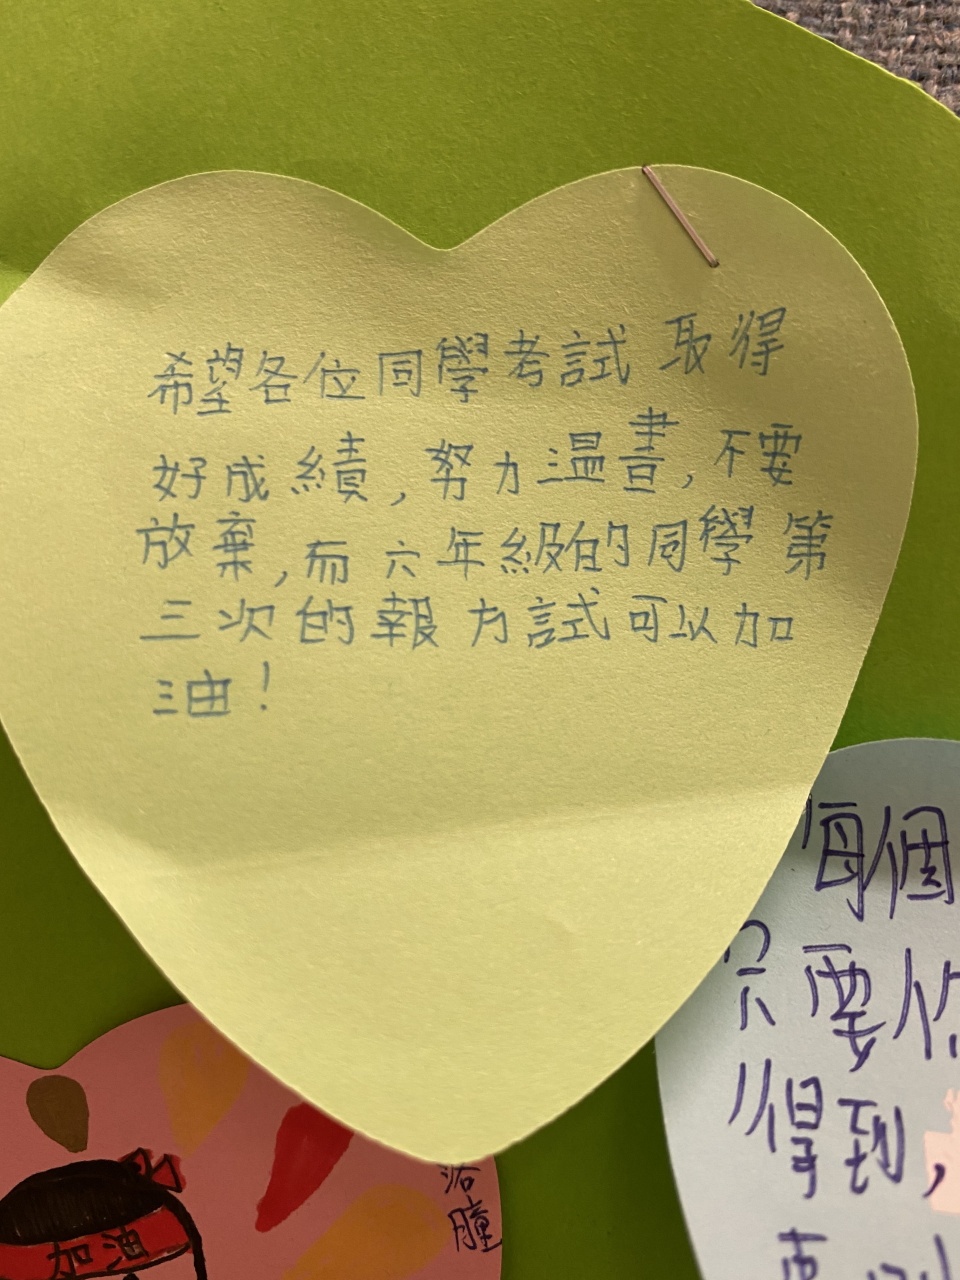 希望各位同學考試取得
好成績，努力溫書，不要
放棄，而六年級的同學第
三次的報方試可以加
油！
每個
只要你
得到，
加油
瞳